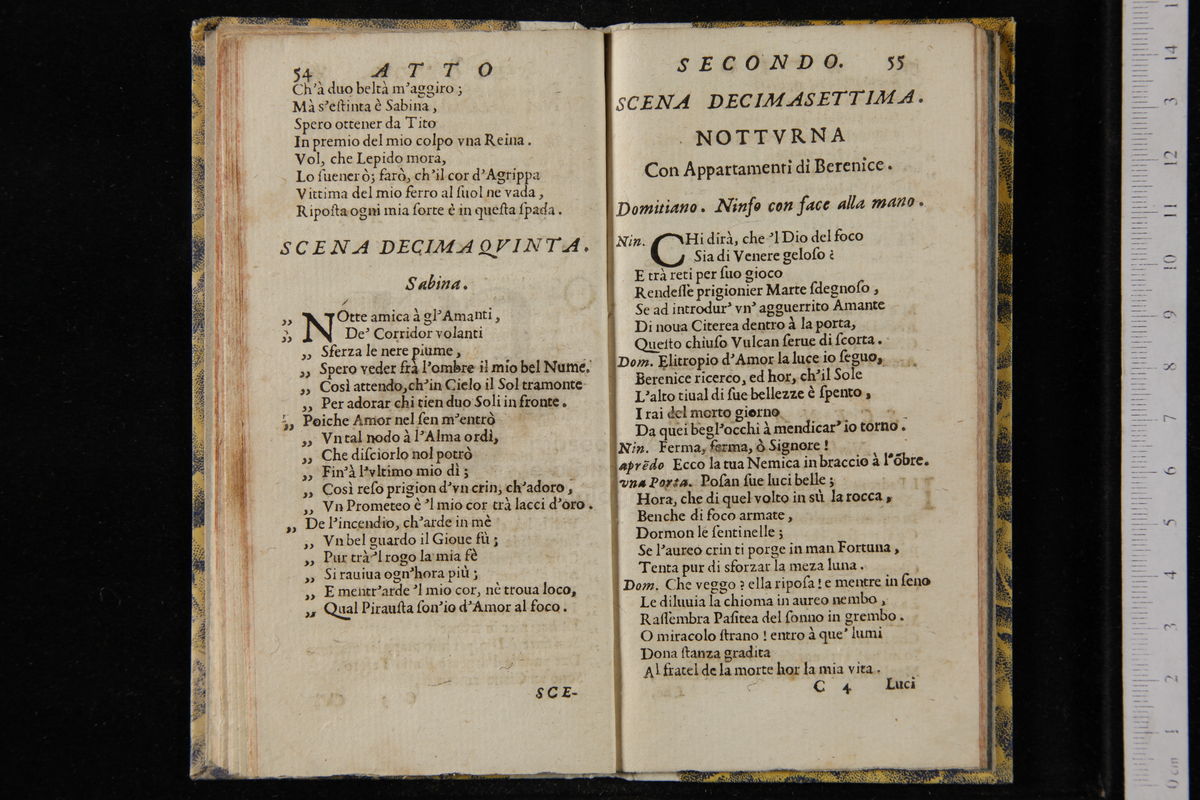 54 ATTO
Ch'à duo beltà m'aggiro ;
Mà s'eſtinta è Sabina ,
Spero ottener da Tito
In premio del mio colpo vna Reina .
Vol, che Lepido mora,
Lo ſuenerò; farò, ch'il cor d'Agrippa
Vittima del mio ferro al ſuol ne vada ,
Ripoſta ogni mia ſorte è in queſta ſpada .
SCENA DECIMAQVINTA.
Sabina.
„ NOtte amica à gl'Amanti ,
„ De' Corridor volanti
„ Sferza le nere piume ,
„ Spero veder frà l'ombre il mio bel Nume.
„ Così attendo, ch'in Cielo il Sol tramonte
„ Per adorar chi tien duo Soli in fronte .
„ Poiche Amor nel ſen m'entrò
„ Vn tal nodo à l'Alma ordì,
„ Che diſciorlo nol potrò
„ Fin'à l'vltimo mio dì ;
„ Così reſo prigion d'vn crin, ch'adoro ,
„ Vn Prometeo è 'l mio cor trà lacci d'oro .
„ De l'incendio, ch'arde in mè
„ Vn bel guardo il Gioue fù ;
„ Pur trà 'l rogo la mia fè
„ Si rauiua ogn'hora più ;
„ E mentr'arde 'l mio cor, nè troua loco,
„ Qual Pirauſta ſon'io d'Amor al foco .
SCE-
SECONDO. 55
SCENA DECIMASETTIMA.
NOTTVRNA
Con Appartamenti di Berenice .
Domitiano . Ninfo con face alla mano .
Nin. CHi dirà, che 'l Dio del foco
Sia di Venere geloſo ?
E trà reti per ſuo gioco
Rendeſſe prigionier Marte ſdegnoſo ,
Se ad introdur' vn' agguerrito Amante
Di noua Citerea dentro à la porta,
Queſto chiuſo Vulcan ſerue di ſcorta .
Dom. Elitropio d'Amor la luce io ſeguo,
Berenice ricerco, ed hor, ch'il Sole
L'alto tiual di ſue bellezze è ſpento ,
I rai del morto giorno
Da quei begl'occhi à mendicar' io torno .
Nin. Ferma, ferma, ò Signore !
aprẽdo Ecco la tua Nemica in braccio à l'õbre.
vna Porta. Poſan ſue luci belle ;
Hora, che di quel volto in sù la rocca ,
Benche di foco armate ,
Dormon le ſentinelle ;
Se l'aureo crin ti porge in man Fortuna ,
Tenta pur di sforzar la meza luna .
Dom. Che veggo ? ella ripoſa ! e mentre in ſeno
Le diluuia la chioma in aureo nembo ,
Raſſembra Paſitea del ſonno in grembo .
O miracolo ſtrano ! entro à que' lumi
Dona ſtanza gradita
Al fratel de la morte hor la mia vita .
C 4 Luci
14
13
12
11
10
9
8
7
6
5
4
3
2
1
0 cm